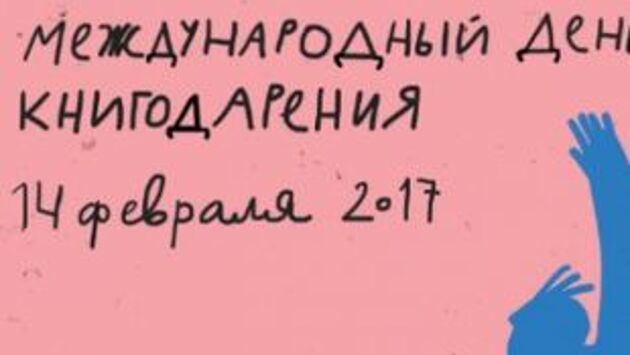 МЕЖДУНАРОДНЫЙ ДЕН
КНИГОДАРЕНИЯ
14 февраля 2017